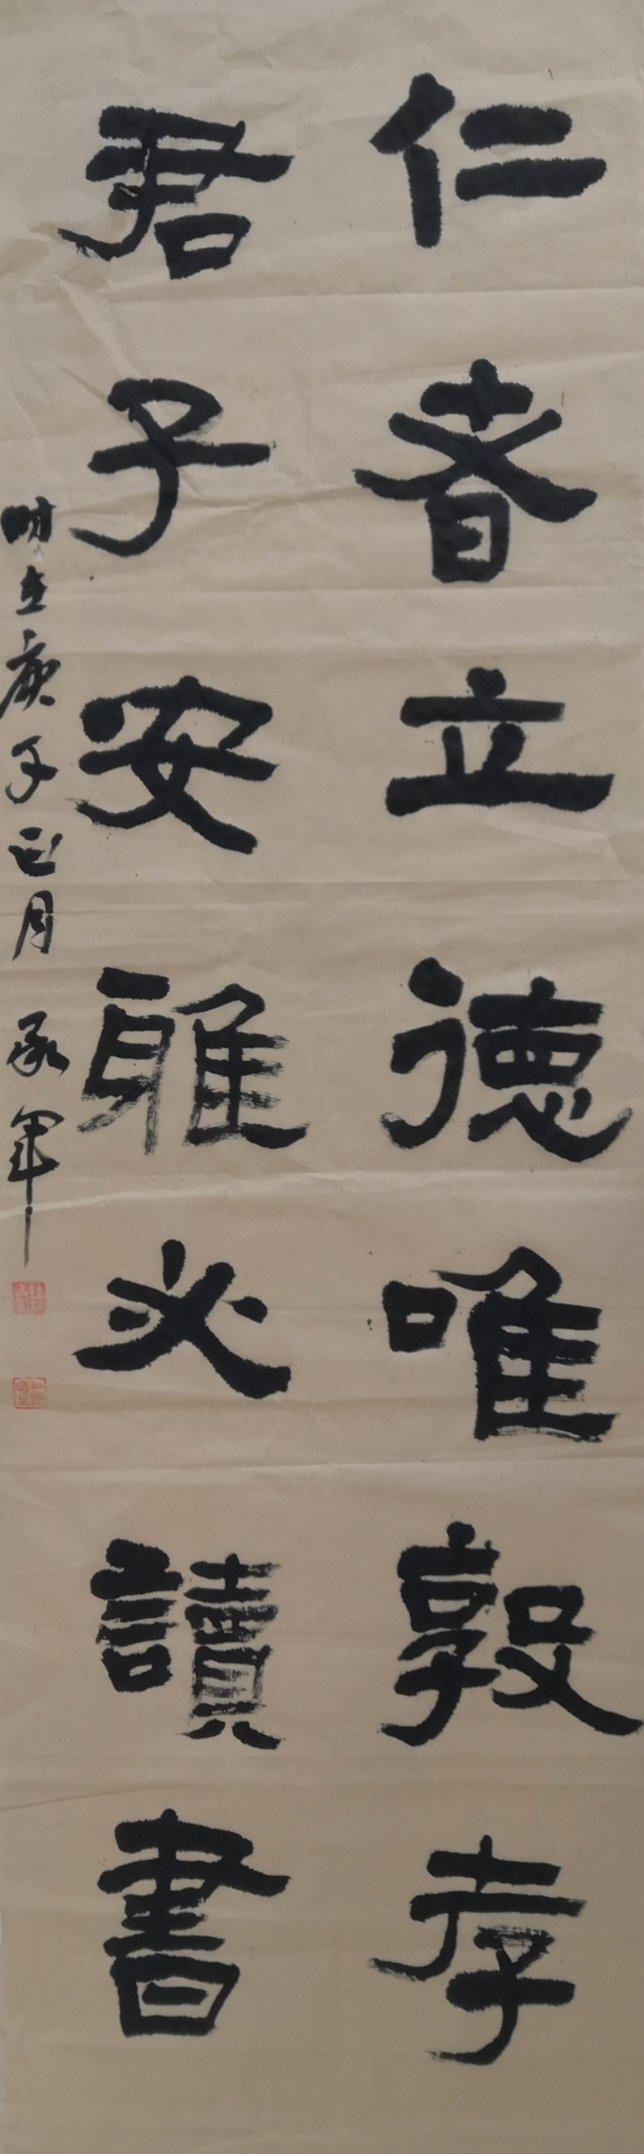 仁者立德唯敦孝
君子安雅必讀書
時在庚子正月 承軍